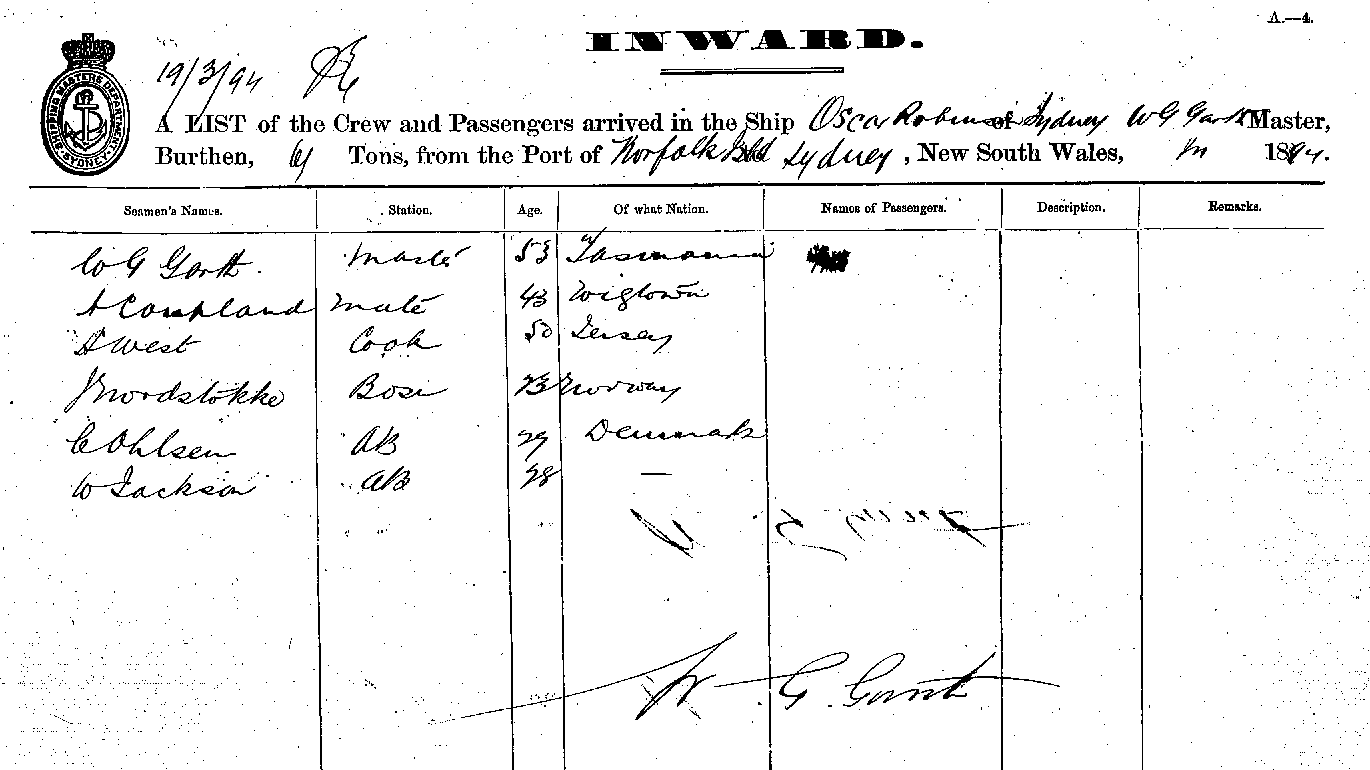 A.—4.
INWARD.
19/3/94
SHIPPING MASTERS DEPARTMENT SYDNEY
A LIST of the Crew and Passengers arrived in the Ship Oscar Robinson of Sydney W G Garth Master,
Burthen, Tons, from the Port of Norfolk Isld Sydney, New South Wales, 1894.
Seamen's Names. Station. Age. Of what Nation. Names of Passengers. Description. Remarks.
W G Garth Master 53 Tasmania
A Coupland Mate 43 Wigtown
West Cook 50 Jersey
J Nordstokke Bosn 23 Norway
C Ohlsen AB 29 Denmark
W Jackson AB 28 —
W G Garth